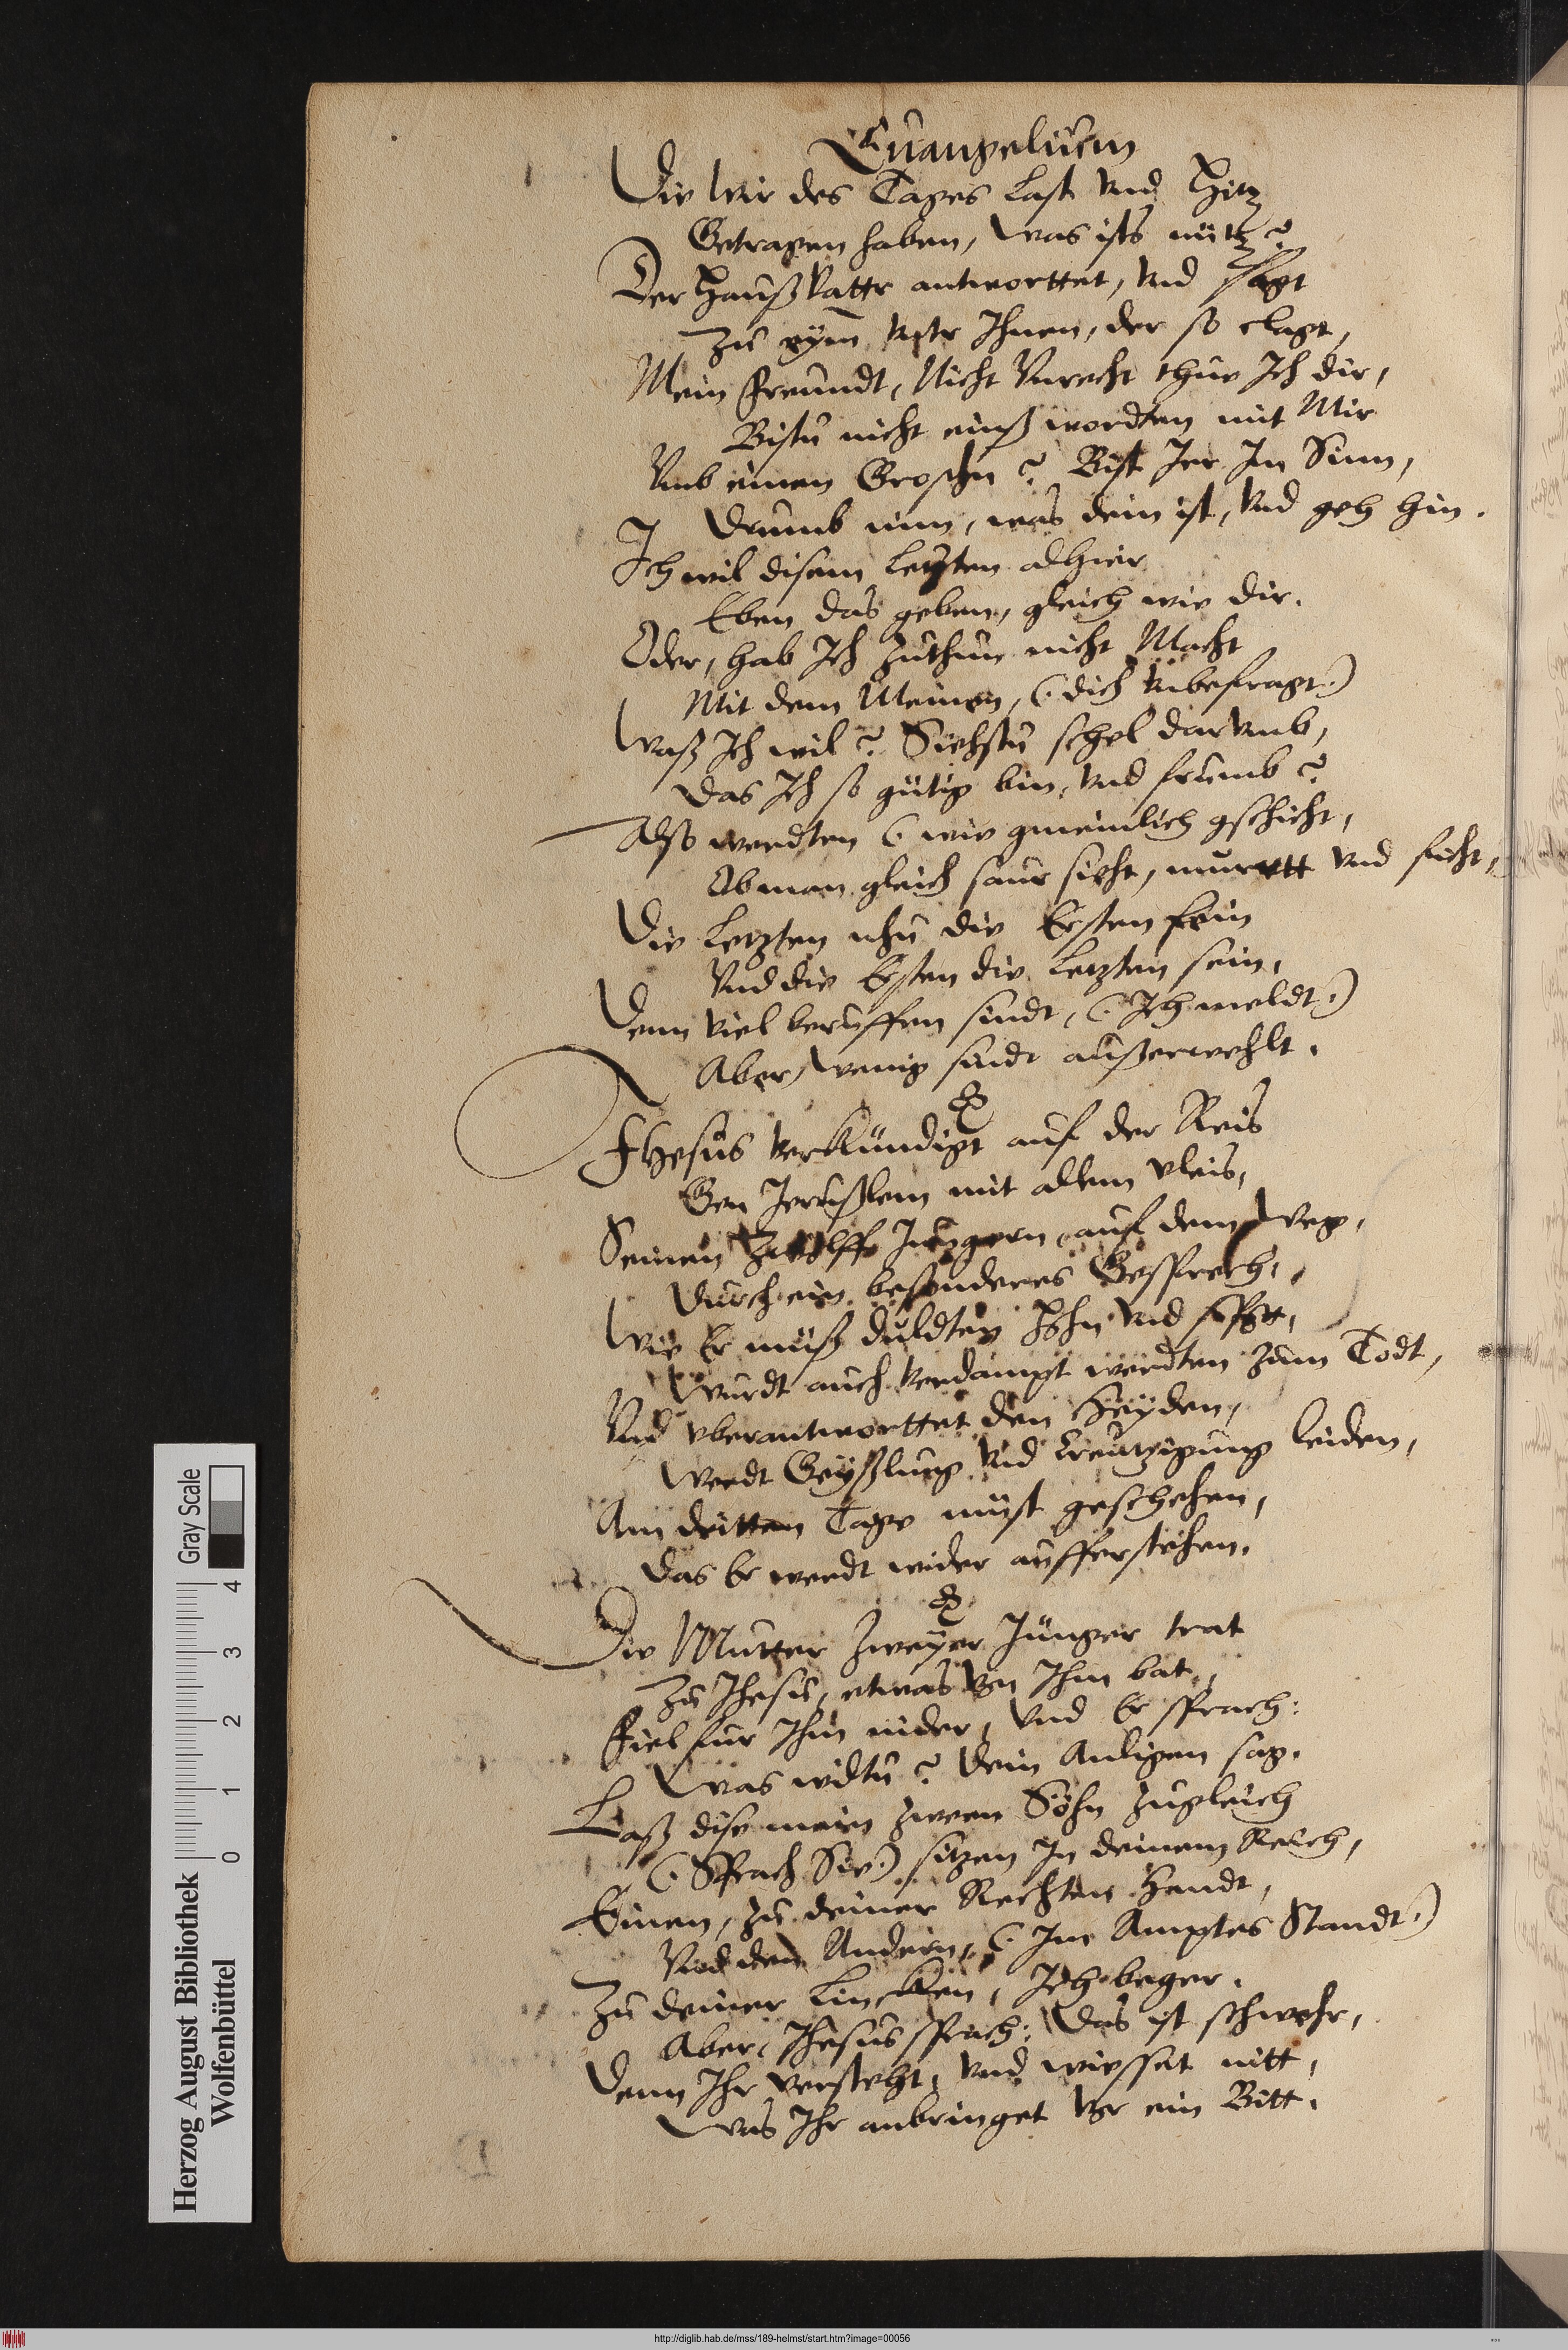 Euangelium
Die Wir des Tages Last vnd Hitz
Getragen haben, Was ists nütz?
Der Haußvattr antworttet, vnd sagt
Zu eym vntr Ihnen, der so clagt,
Mein Freundt, Nicht Vnrecht thue Ich dir,
Bistu nicht einß wordten mit Mir
Vmb einen Groschn? Bist Irr Im Sinn,
Drumb nim, was dein ist, vnd geh hin.
Ich wil disem Letzten alhier
Eben das geben, gleich wie dir.
Oder, hab Ich zuthun nicht Macht
Mit dem Meinen, (dich vnbefragt)
Waß Ich wil? Siehstu schel darumb,
Das Ich so gütig bin, vnd frumb?
Also werdten (wie gmeinlich gschicht,
Ob man gleich saur sieht, murrett vnd ficht,
Die Letzten nhu die Ersten sein
Vnd die Ersten die Letzten sein,
Denn viel beruffen sindt, (Ich meldt)
Aber, wenig sindt außerwehlt.
JHesus verkündigt auf der Reis
Gen Jerußlem mit allem vleis,
Seinen Zwölff Jungern auf dem Weg,
Durch ein besonderes Gesprech,
Wie Er müß duldten Hohn vnd spott,
Wurdt auch verdampt werdten zum Todt,
Vnd vberantworttet den Heyden,
Werdt Geyßlung vnd Creutzigung leiden,
Am dritten Tage müst geschehen,
Das Er werdt wider aufferstehen.
Die Mutter zweyer Jünger trat
Zu Jhesu, etwas von Ihm bat,
Fiel fur Ihm nider, Vnd Er sprach:
Was wiltu? Dein Anligen sag.
Laß dise mein zween Söhn zugleich
(Sprach Sie) sitzen In deinem Reich,
Einen, zu deiner Rechten Handt,
Vnd den Andern, (Inn Amptes Standt)
Zu deiner Lincken, Ich beger.
Aber, Jhesus sprach: Das ist schwehr,
Denn Ihr versteht, vnd wiesset nitt,
Was Ihr anbringet vor ein Bitt.
Herzog August Bibliothek
Wolfenbüttel
0 1 2 3 4
Gray Scale
http://diglib.hab.de/mss/189-helmst/start.htm?image=00056